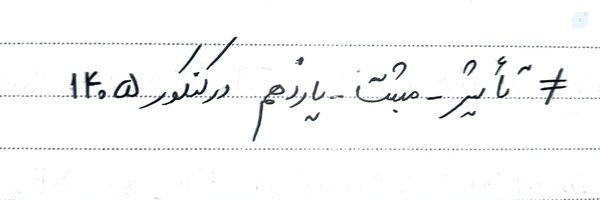 # تأثیر - مثبت - یازدهم در کنکور ۱۴۰۵